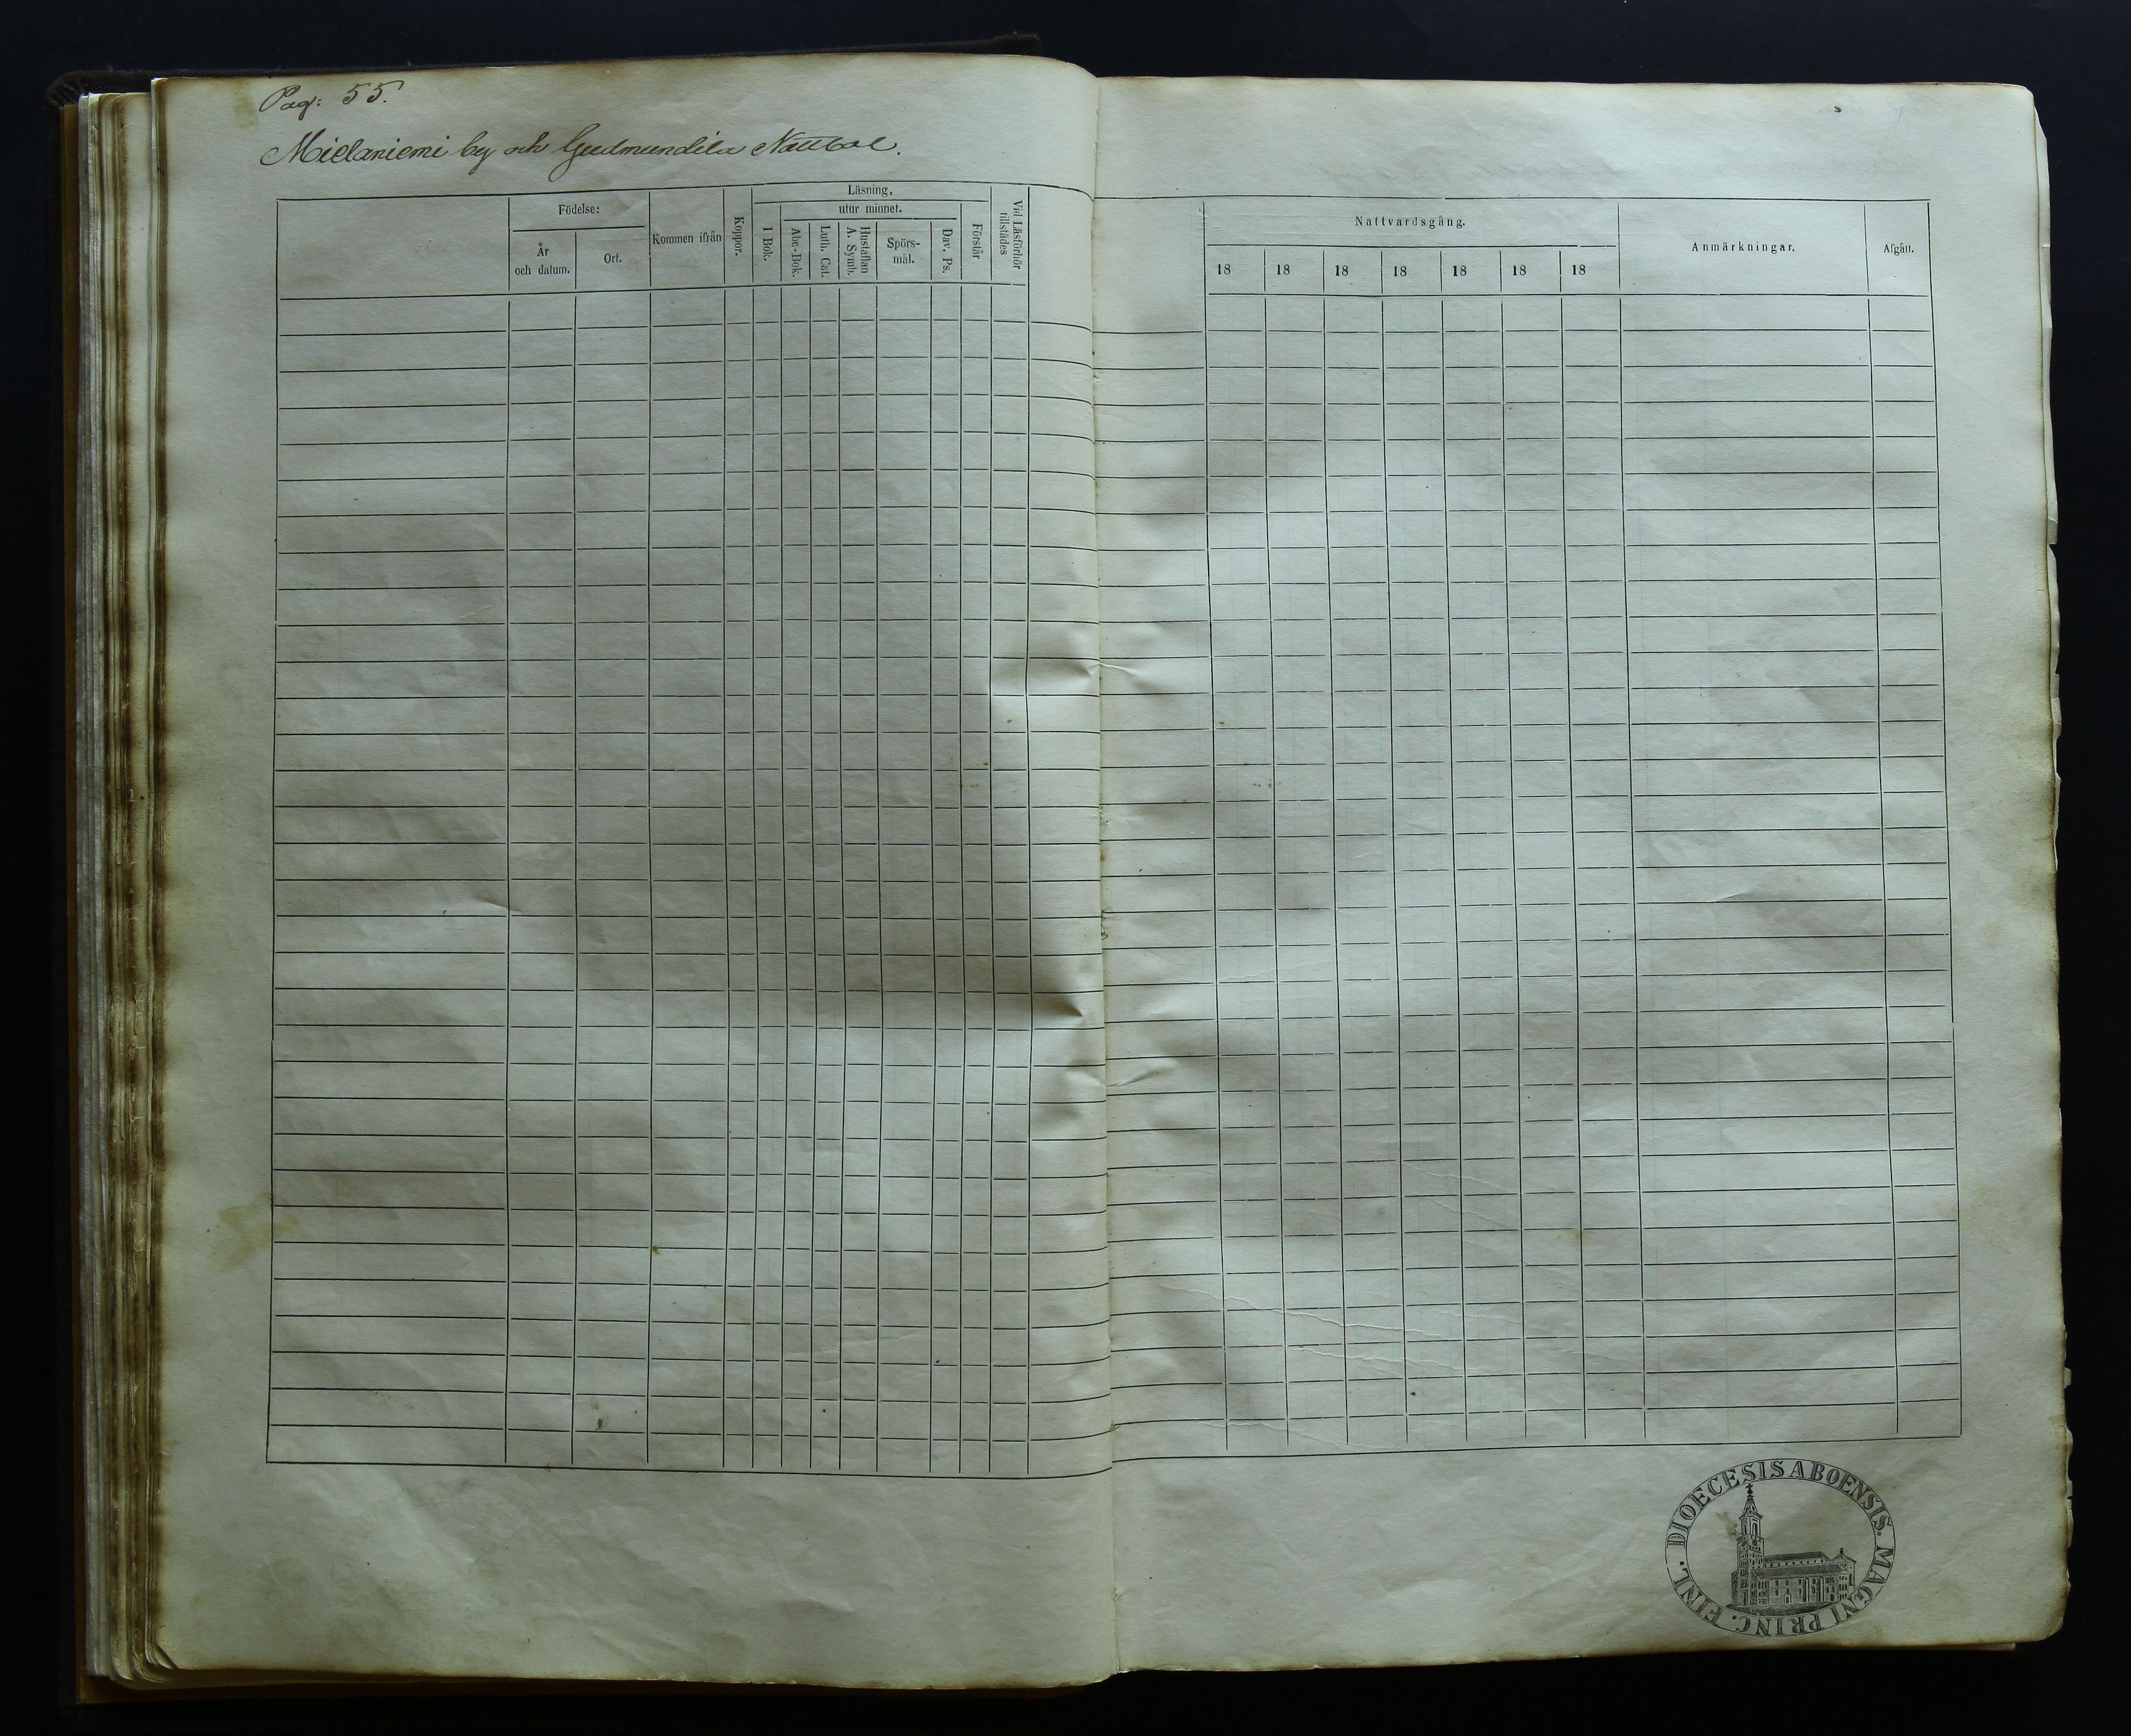 Pag: 55.
Mielaniemi by och Gudmundila Nattbol.
Födelse:
År och datum.
Ort.
Kommen ifrån
Koppor.
Läsning,
I Bok.
utur minnet.
Abc-Bok.
Luth. Cat.
Hustaflan
A. Symb.
Spörs-
mål.
Dav. Ps.
Förstår
Vid Läsförhör
tillstädes
Nattvardsgång.
18 18 18 18 18 18 18
Anmärkningar.
Afgått.
DIOECESIS ABOENSIS. MAGNI PRINC. FINL.